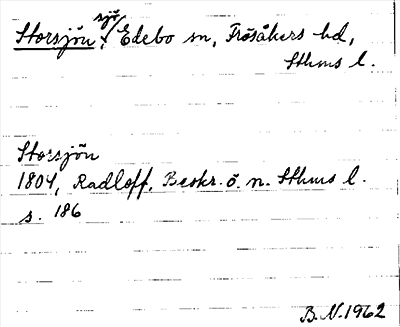 Storsjön, sjö, Edebo sn, Frösåkers hd,
Sthms l.
Storsjön
1804, Radloff, Beskr. ö. n. Sthms l.
s. 186
B.N. 1962